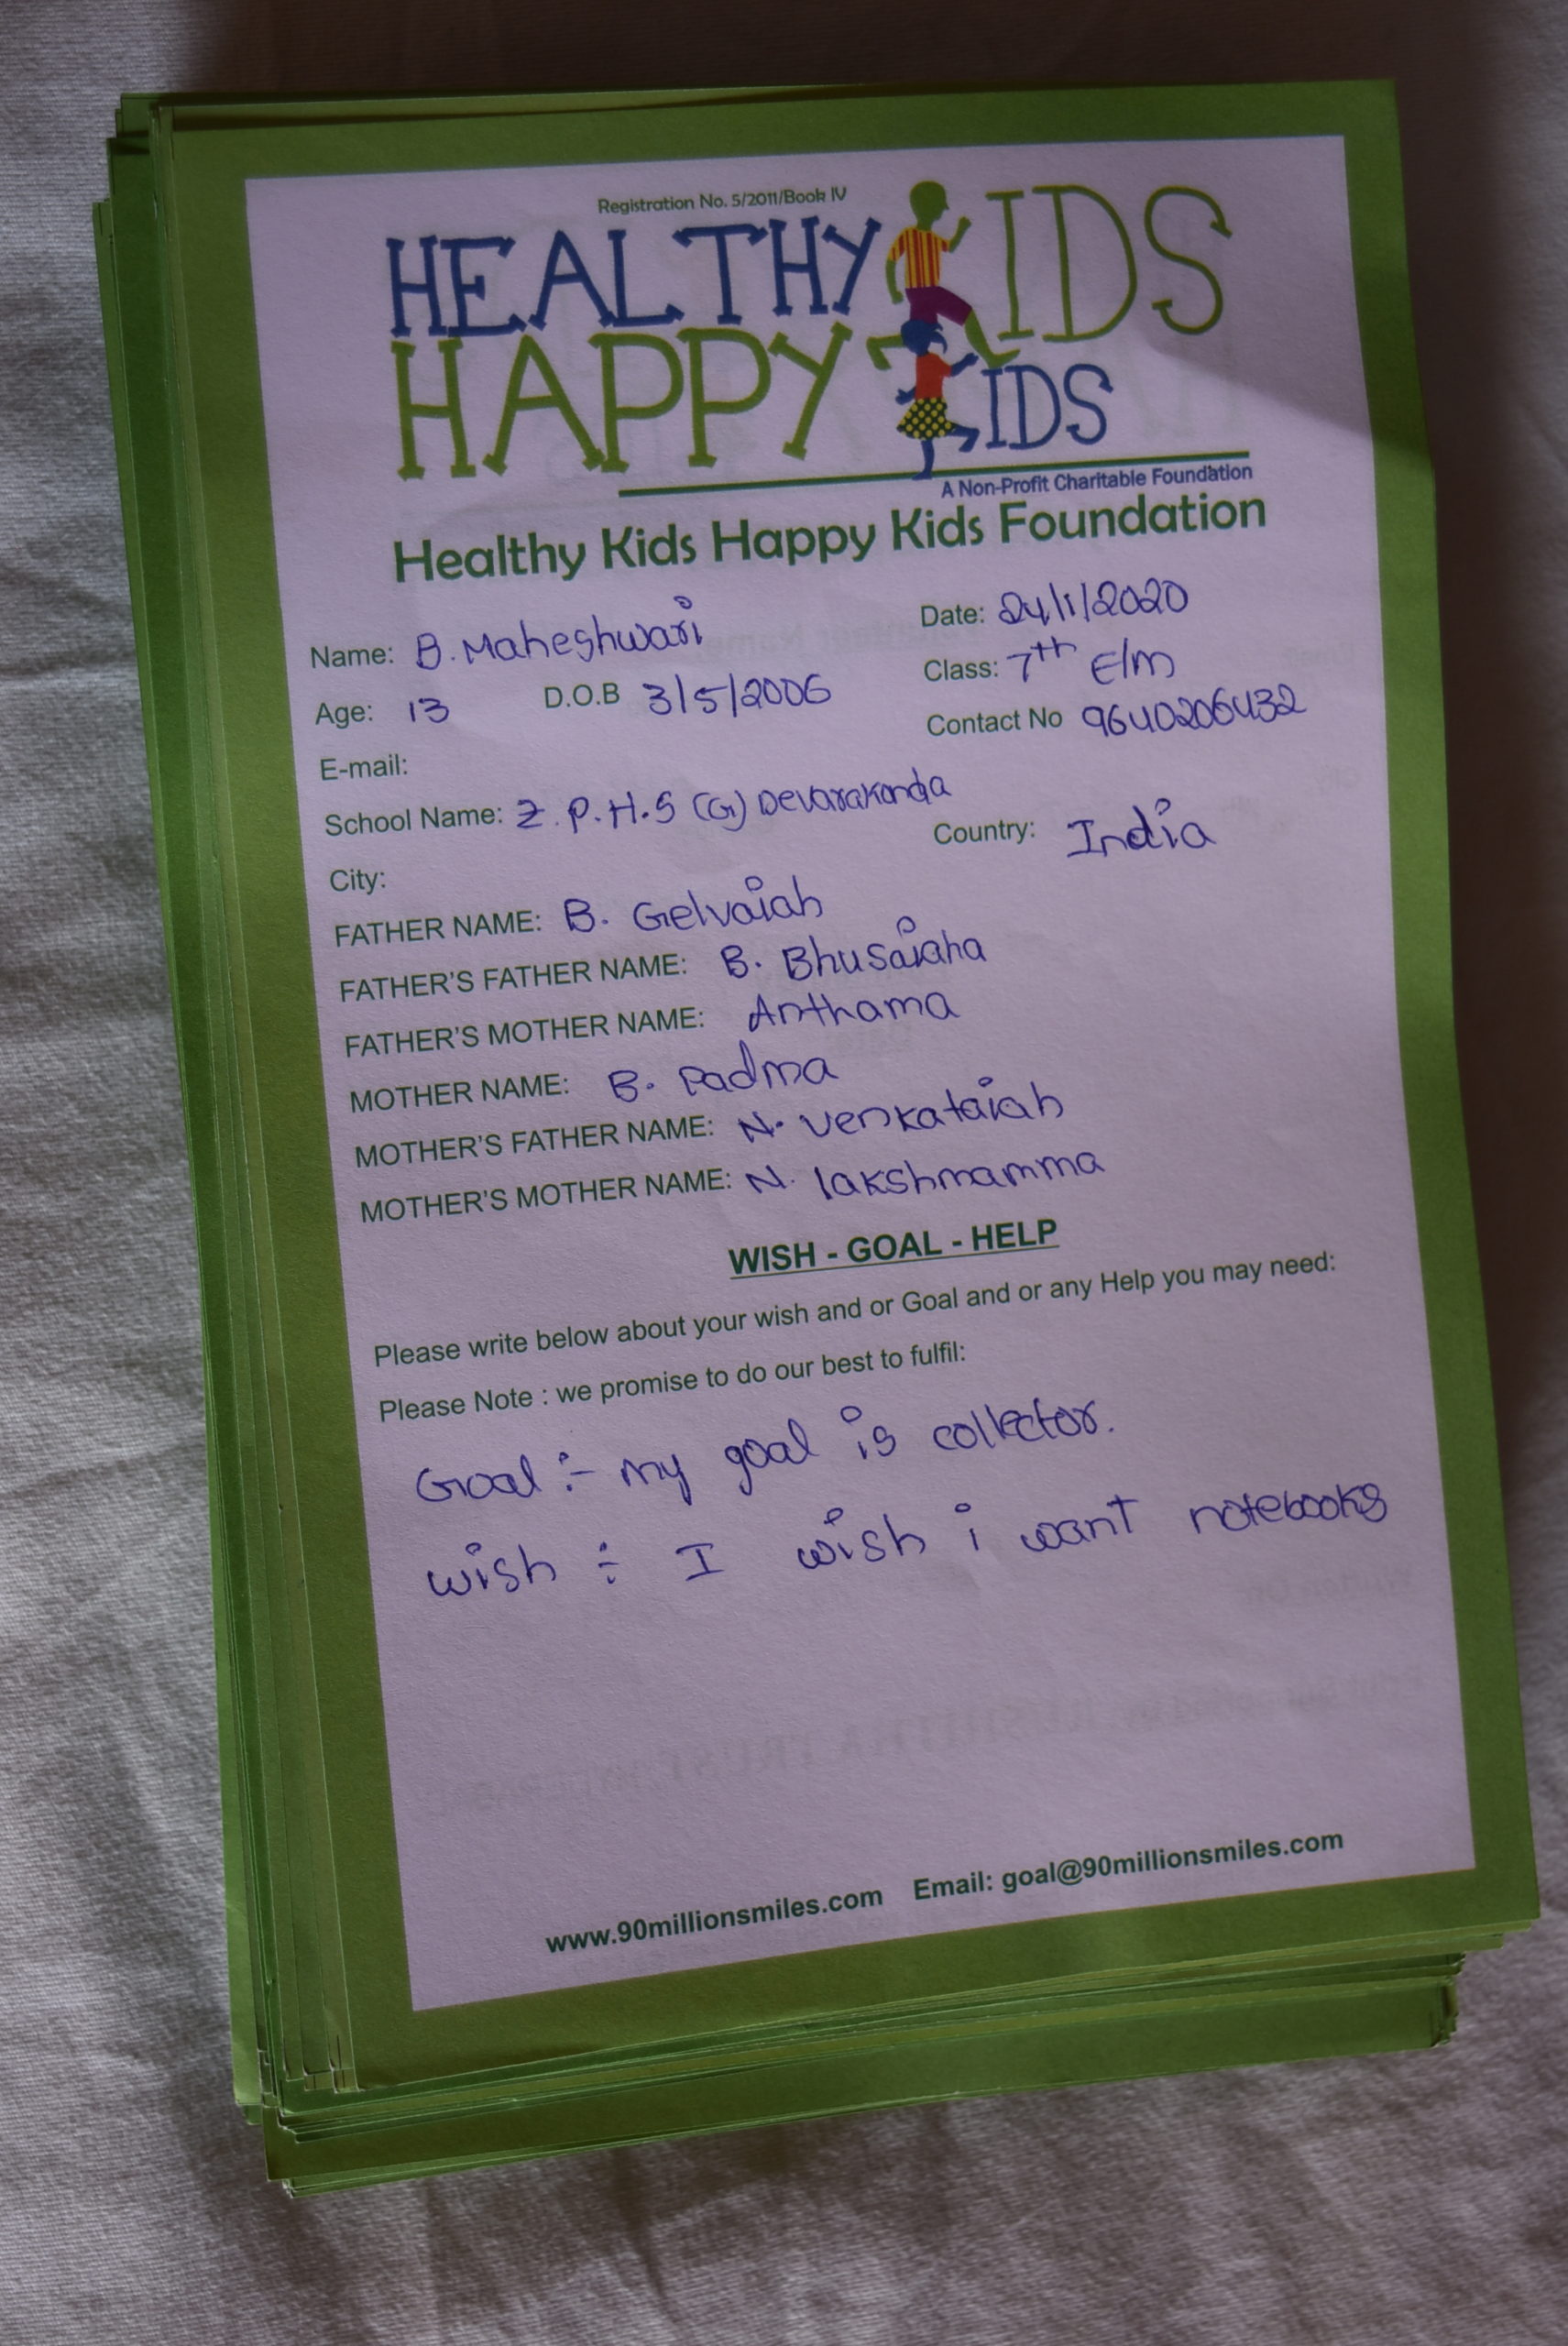 Registration No. 5/2011/Book IV
HEALTHY KIDS
HAPPY KIDS
A Non-Profit Charitable Foundation
Healthy Kids Happy Kids Foundation
Name: B. Maheshwari Date: 24/1/2020
Age: 13 D.O.B 3/5/2006 Class: 7th E/m
E-mail: Contact No 9640206432
School Name: Z. P. H. S (G) Devarakonda
City: Country: India
FATHER NAME: B. Gelvaiah
FATHER'S FATHER NAME: B. Bhusaiaha
FATHER'S MOTHER NAME: Anthama
MOTHER NAME: B. Padma
MOTHER'S FATHER NAME: N. venkataiah
MOTHER'S MOTHER NAME: N. lakshmamma
WISH - GOAL - HELP
Please write below about your wish and or Goal and or any Help you may need:
Please Note : we promise to do our best to fulfil:
Goal :- my goal is collector.
wish : I wish i want notebooks
www.90millionsmiles.com Email: goal@90millionsmiles.com